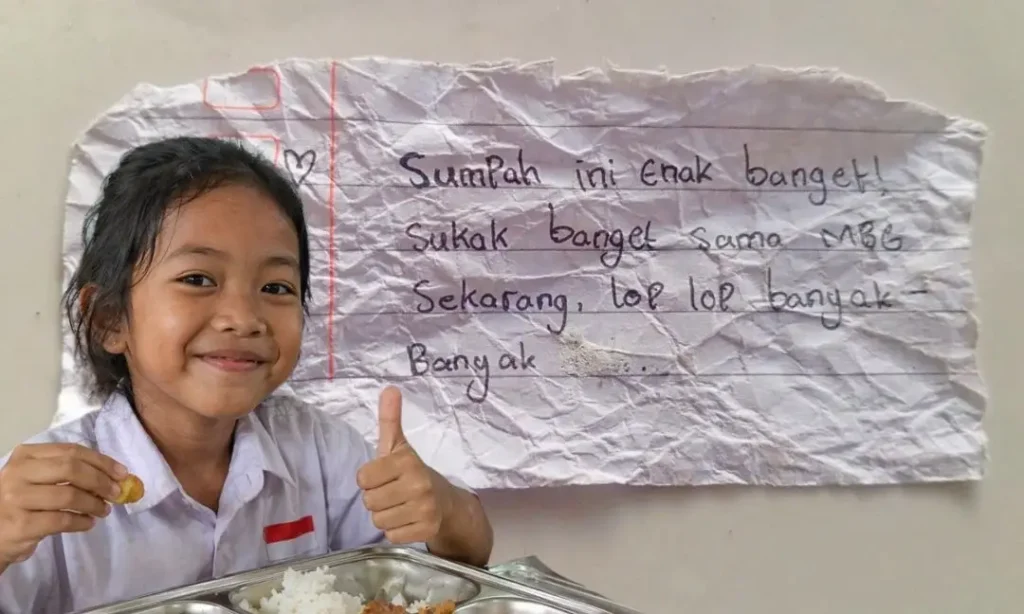 Sumpah ini Enak banget!
Sukak banget sama MBG
Sekarang, lop lop banyak-
Banyak ...